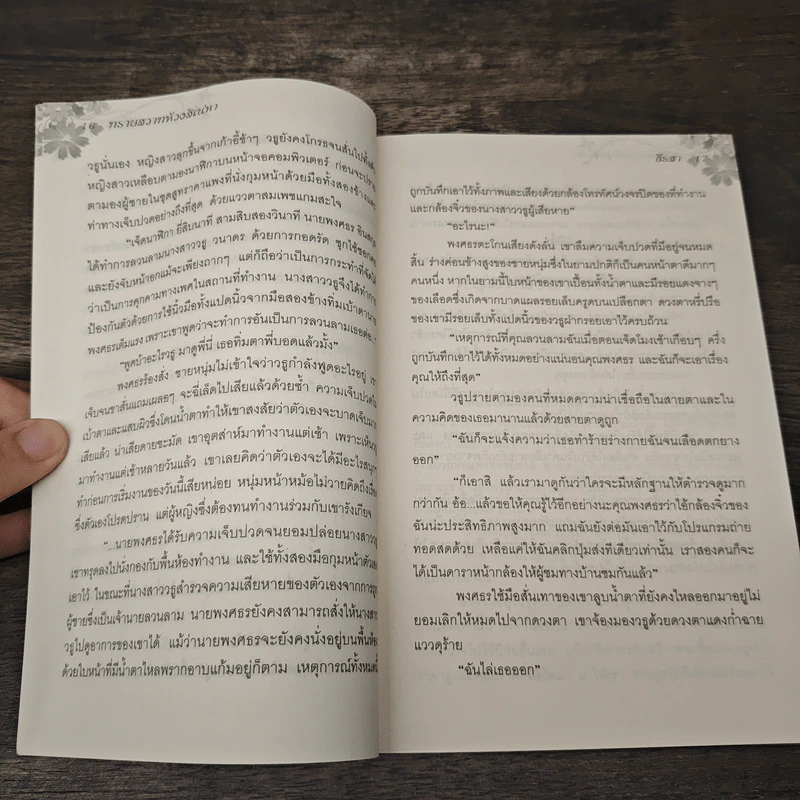 16 ทราบสวาทห้วงสิเน่หา
วรูนั่นเอง หญิงสาวลุกขึ้นจากเก้าอี้ช้าๆ วรูยังคงโกรธจนสั่นไปทั้งตัว
หญิงสาวเหลือบตามองนาฬิกาบนหน้าจอคอมพิวเตอร์ ก่อนจะปราย
ตามองผู้ชายในชุดสูทราคาแพงที่นั่งกุมหน้าด้วยมือทั้งสองข้างและ
ทำท่าทางเจ็บปวดอย่างถึงที่สุด ด้วยแววตาสมเพชแกมสะใจ
“เจ็ดนาฬิกา ยี่สิบนาที สามสิบสองวินาที นายพงศธร
ได้ทำการลวนลามนางสาววรู วนาดร ด้วยการกอดรัด ซุกไซ้ซอกคอ
และยังจับหน้าอกแม้จะเพียงถากๆ แต่ก็ถือว่าเป็นการกระทำที่จัดได้
ว่าเป็นการคุกคามทางเพศในสถานที่ทำงาน นางสาววรูจึงได้ทำการ
ป้องกันตัวด้วยการใช้นิ้วมือทั้งแปดนิ้วจากมือสองข้างทิ่มเบ้าตานาย
พงศธรเต็มแรง เพราะเขาพูดว่าจะทำการอันเป็นการลวนลามเธอต่อ”
“พูดบ้าอะไรวรู มาดูพี่นี่ เธอทิ่มตาพี่บอดแล้วมั้ง”
พงศธรร้องสั่ง ชายหนุ่มไม่เข้าใจว่าวรูกำลังพูดอะไรอยู่
เจ็บจนขาสั่นแถมเผลอๆ จะฉี่เล็ดไปเสียแล้วด้วยซ้ำ ความเจ็บปวดใน
เบ้าตาและแสบผิวซึ่งโดนน้ำตาทำให้เขาสงสัยว่าตัวเองจะบาดเจ็บมาก
เสียแล้ว น่าเสียดายชะมัด เขาอุตส่าห์มาทำงานแต่เช้า เพราะเห็นวรู
มาทำงานแต่เช้าหลายวันแล้ว เขาเลยคิดว่าตัวเองจะได้มีอะไรสนุกๆ
ทำก่อนการเริ่มงานของวันนี้เสียหน่อย หนุ่มหน้าหม้อไม่วายคิดถึงเรื่อง
ซึ่งตัวเองโปรดปราน แต่ผู้หญิงซึ่งต้องทนทำงานร่วมกับเขารังเกียจ
“...นายพงศธรได้รับความเจ็บปวดจนยอมปล่อยนางสาววรู
เขาทรุดลงไปนั่งกองกับพื้นห้องทำงาน และใช้ทั้งสองมือกุมหน้าตัวเอง
เอาไว้ ในขณะที่นางสาววรูสำรวจความเสียหายของตัวเองจากการถูก
ผู้ชายซึ่งเป็นเจ้านายลวนลาม นายพงศธรยังคงสามารถสั่งให้นางสาว
วรูไปดูอาการของเขาได้ แม้ว่านายพงศธรจะยังคงนั่งอยู่บนพื้นห้อง
ด้วยใบหน้าที่มีน้ำตาไหลพรากอาบแก้มอยู่ก็ตาม เหตุการณ์ทั้งหมดนี้
ธีรสา 17
ถูกบันทึกเอาไว้ทั้งภาพและเสียงด้วยกล้องโทรทัศน์วงจรปิดของที่ทำงาน
และกล้องจิ๋วของนางสาววรูผู้เสียหาย”
“อะไรนะ!”
พงศธรตะโกนเสียงดังลั่น เขาลืมความเจ็บปวดที่มีอยู่จนหมด
สิ้น ร่างค่อนข้างสูงของชายหนุ่มซึ่งในยามปกติก็เป็นคนหน้าตาดีมากๆ
คนหนึ่ง หากในยามนี้ใบหน้าของเขาเปื้อนทั้งน้ำตา และมีรอยแดงจางๆ
ของเลือดซึ่งเกิดจากบาดแผลรอยเล็บครูดบนเปลือกตา ดวงตาหรี่ปรือ
ของเขามีรอยเล็บทั้งแปดนิ้วของวรูฝากรอยเอาไว้ครบถ้วน
“เหตุการณ์ที่คุณลวนลามฉันเมื่อตอนเจ็ดโมงเช้าเกือบๆ ครึ่ง
ถูกบันทึกเอาไว้ได้ทั้งหมดอย่างแน่นอนคุณพงศธร และฉันก็จะเอาเรื่อง
คุณให้ถึงที่สุด”
วรูปรายตามองคนที่หมดความน่าเชื่อถือในสายตาและใน
ความคิดของเธอมานานแล้วด้วยสายตาดูถูก
“ฉันก็จะแจ้งความว่าเธอทำร้ายร่างกายฉันจนเลือดตกยาง
ออก”
“ก็เอาสิ แล้วเรามาดูกันว่าใครจะมีหลักฐานให้ตำรวจดูมาก
กว่ากัน อ้อ...แล้วขอให้คุณรู้ไว้อีกอย่างนะคุณพงศธรว่าไอ้กล้องจิ๋วของ
ฉันน่ะประสิทธิภาพสูงมาก แถมฉันยังต่อมันเอาไว้กับโปรแกรมถ่าย
ทอดสดด้วย เหลือแค่ให้ฉันคลิกปุ่มส่งทีเดียวเท่านั้น เราสองคนก็จะ
ได้เป็นดาราหน้ากล้องให้ผู้ชมทางบ้านชมกันแล้ว”
พงศธรใช้มือสั่นเทาของเขาลูบน้ำตาที่ยังคงไหลออกมาอยู่ไม่
ยอมเลิกให้หมดไปจากดวงตา เขาจ้องมองวรูด้วยดวงตาแดงก่ำฉาย
แววดุร้าย
“ฉันไล่เธอออก”